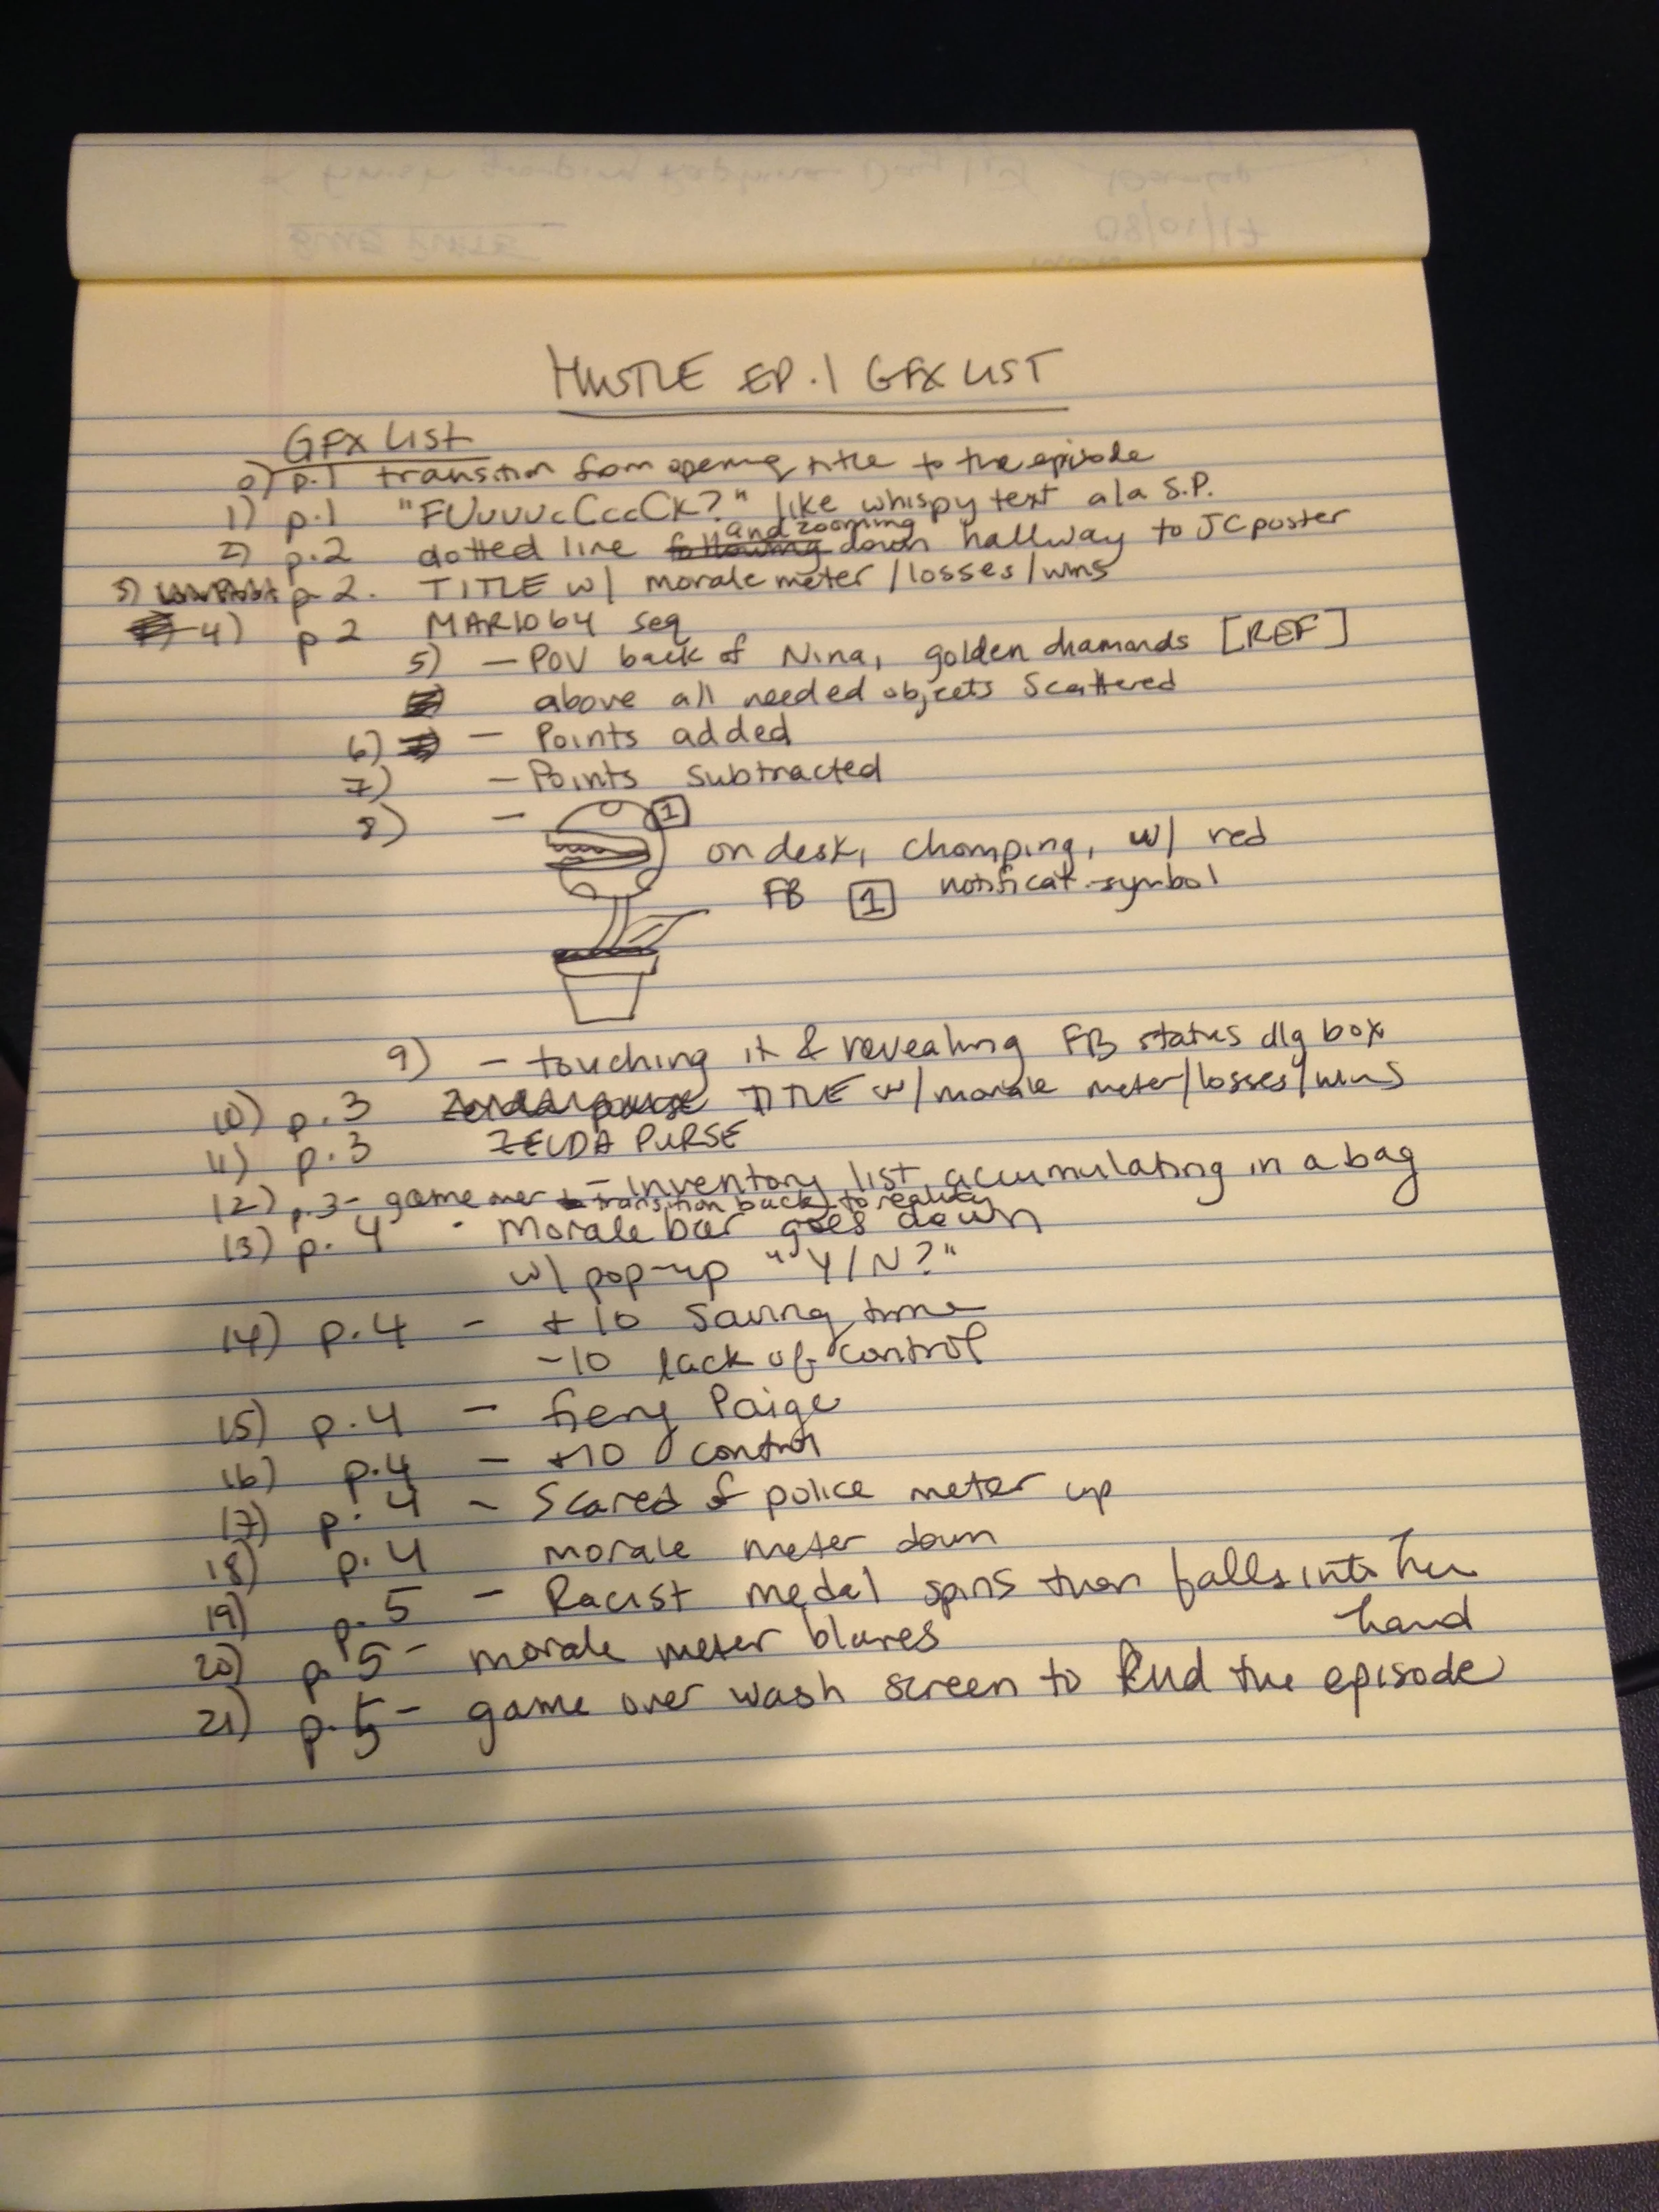 HUSTLE EP.1 GFX LIST
GFX LIST
0) p.1 transition from opening title to the episode
1) p.1 "FUuuuucCccCk?" like whispy text ala S.P.
and zooming
2) p.2 dotted line following down hallway to JC poster
3) p 2. TITLE w/ morale meter/losses/wins
4) p 2 MARIO 64 seq
5) - POV back of Nina, golden diamonds [REF]
above all needed objects scattered
6) - Points added
7) - Points subtracted
8) - 1
on desk, chomping, w/ red
FB 1 notificat. symbol
9) - touching it & revealing FB status dlg box
10) p.3 Zelda purse TITLE w/ morale meter/losses/wins
11) p.3 ZELDA PURSE
- inventory list accumulating in a bag
12) p.3 - game over transition back to reality
13) p. 4 - Morale bar goes down
w/ pop-up "Y/N?"
14) p.4 - +10 Saving time
-10 lack of control
15) p.4 - fiery Paige
16) p.4 - +10 control
17) p. 4 - Scared of police meter up
18) p.4 morale meter down
19) p.5 - Racist medal spins then falls into her
hand
20) p 5 - morale meter blares
21) p.5 - game over wash screen to End the episode